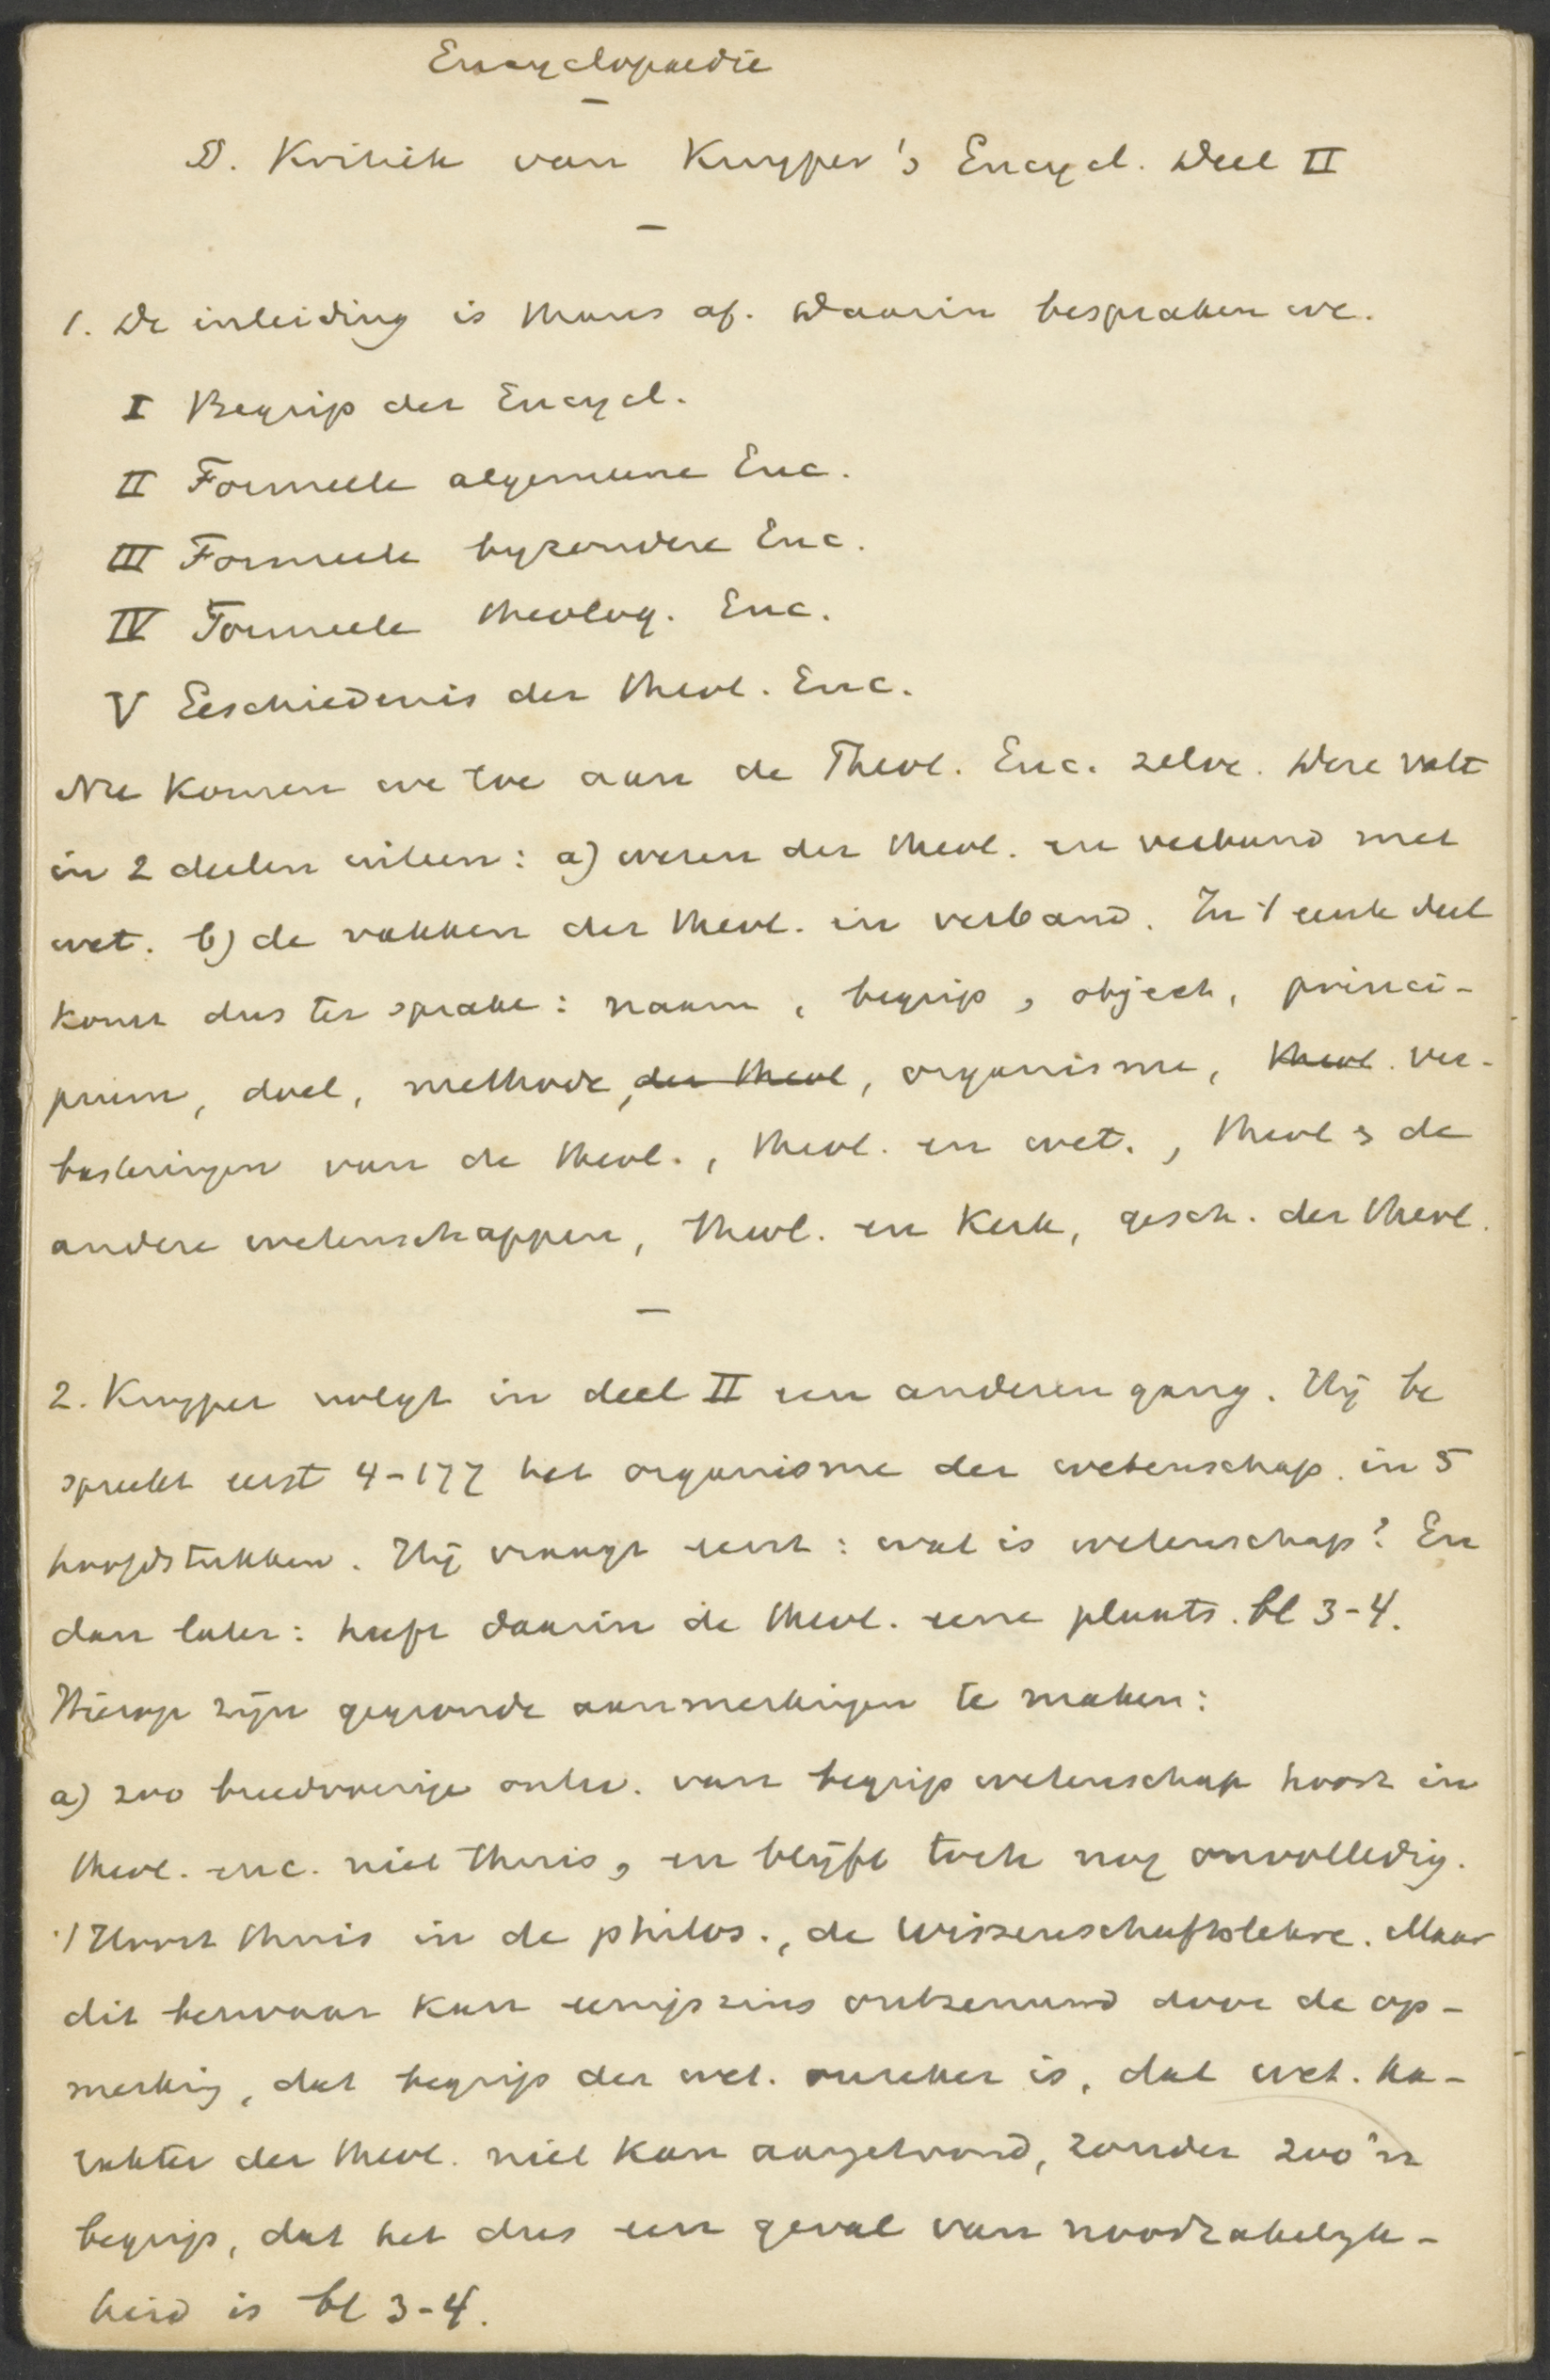 Encyclopaedie
D. Kritiek van Kuyper's Encycl. Deel II
1. De inleiding is thans af. Daarin bespraken we.
I Begrip der Encycl.
II Formeele algemeene Enc.
III Formeele byzondere Enc.
IV Formeele theolog. Enc.
V Geschiedenis der theol. Enc.
Nu komen we toe aan de Theol. Enc. zelve. Deze valt
in 2 deelen uiteen: a) wezen der theol. in verband met
wet. b) de vakken der theol. in verband. In 't eerste deel
komt dus ter sprake: naam, begrip, object, princi-
pium, doel, methode, der theol, organisme, theol. ver-
basteringen van de theol., theol. en wet., theol & de
andere wetenschappen, theol. en Kerk, gesch. der theol.
2. Kuyper volgt in deel II een anderen gang. Hij be
spreekt eerst 4-177 het organisme der wetenschap. in 5
hoofdstukken. Hij vraagt eerst: wat is wetenschap? En
dan later: heeft daarin de theol. eene plaats. bl 3-4.
Hierop zijn gegronde aanmerkingen te maken:
a) zoo breedvoerige ontw. van begrip wetenschap hoort in
theol. enc. niet thuis, en blijft toch nog onvolledig.
't Hoort thuis in de philos., de Wissenschaftslehre. Maar
dit bezwaar kan eenigszins ontzenuwd door de op-
merking, dat begrip der wet. onzeker is, dat wet. ka-
rakter der theol. niet kan aangetoond, zonder zoo'n
begrip, dat het dus een geval van noodzakelyk-
heid is bl 3-4.